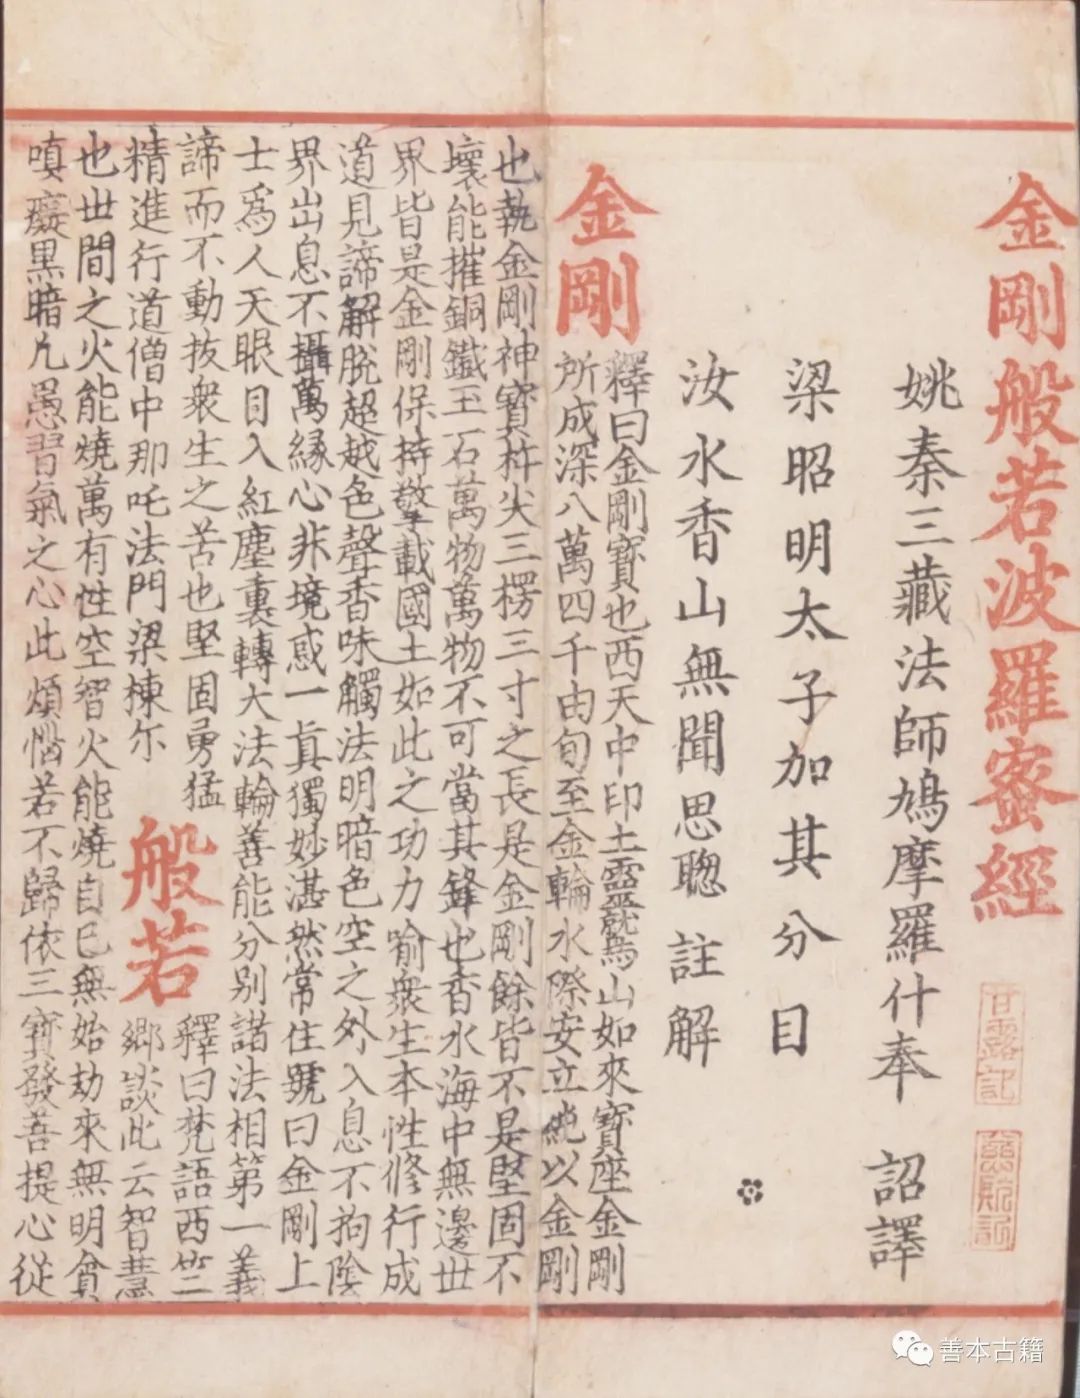 金剛般若波羅蜜經
甘露記
姚秦三藏法師鳩摩羅什奉 詔譯
梁昭明太子加其分目
汝水香山無聞思聰 註解
金剛
釋曰金剛寶也西天中印土靈鷲山如來寶座金剛
所成深八萬四千由旬至金輪水際安立純以金剛
也執金剛神寶杵尖三楞三寸之長是金剛餘皆不是堅固不
壞能摧銅鐵玉石萬物萬物不可當其鋒也香水海中無邊世
界皆是金剛保持擎載國土如此之功力喻衆生本性修行成
道見諦解脫超越色聲香味觸法明暗色空之外入息不拘陰
界出息不攝萬緣心非境惑一真獨妙湛然常住號曰金剛上
士爲人天眼目入紅塵裏轉大法輪善能分别諸法相第一義
諦而不動拔衆生之苦也堅固勇猛
精進行道僧中那吒法門梁棟尓
般若
釋曰梵語西竺
鄉談此云智慧
也世間之火能燒萬有性空智火能燒自己無始劫來無明貪
嗔癡黑暗凢愚習氣之心此煩惱若不歸依三寶發菩提心從
善本古籍